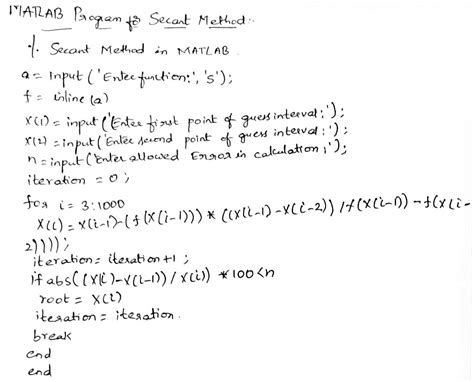 MATLAB Program for Secant Method:-
% Secant Method in MATLAB.
a = Input ('Enter function:', 's');
f = inline (a)
X(1) = input ('Enter first point of guess interval:');
X(2) = input ('Enter second point of guess interval:');
n = input ('Enter allowed Error in calculation:');
iteration = 0;
for i = 3:1000
X(i) = X(i-1) - (f(X(i-1))) * ((X(i-1) - X(i-2)) / f(X(i-1)) - f(X(i-
2))));
iteration = iteration + 1;
if abs((X(i) - X(i-1)) / X(i)) * 100 < n
root = X(i)
iteration = iteration.
break
end
end